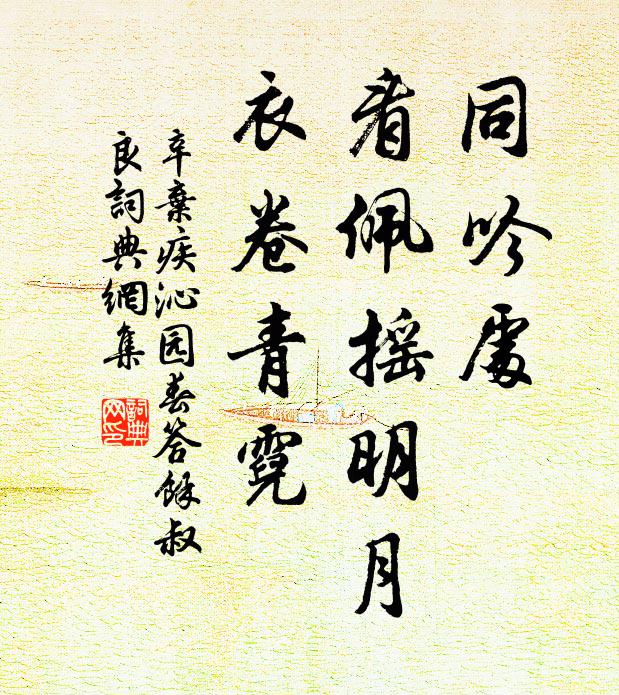 同吟處
看佩摇明月
衣卷青霓
辛棄疾沁园春答餘叔
良詞典網集
詞典
网印